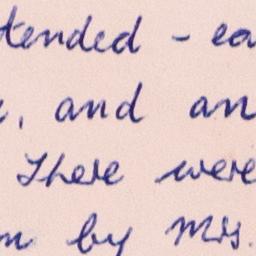 tended - ea
, and an
There were
n by Mrs.